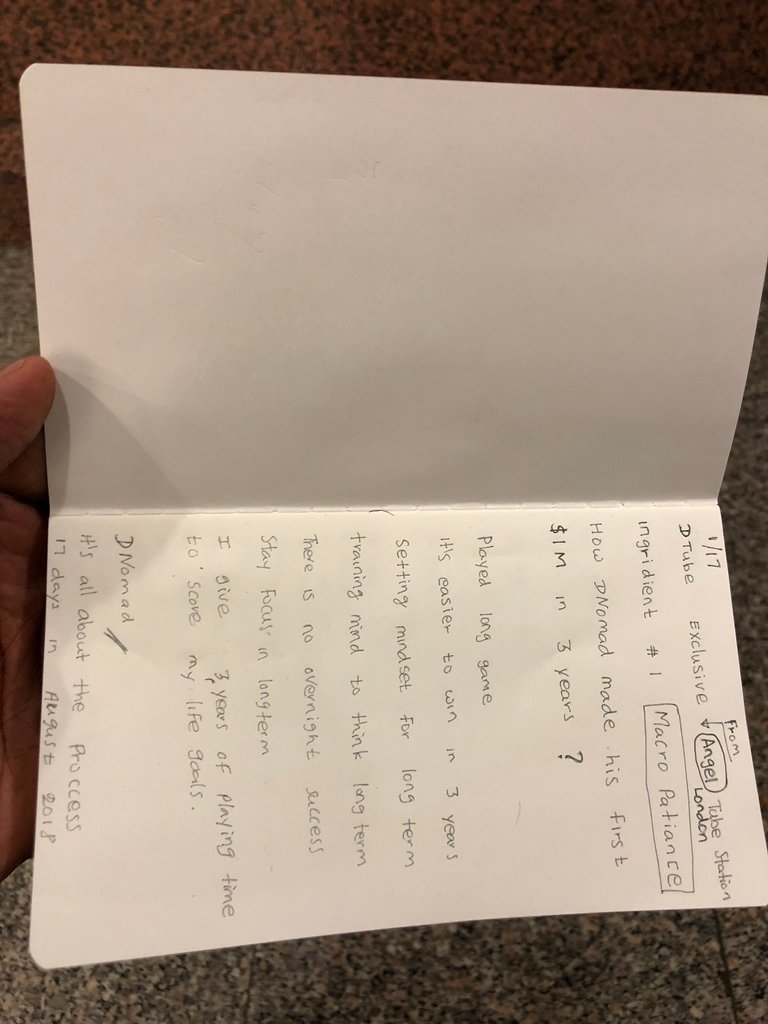 1/17
From
DTube Exclusive Angel Tube Station
London
ingridient # 1 Macro Patiance
How DNomad made his first
$1M in 3 years ?
Played long game
it's easier to win in 3 years
Setting mindset for long term
training mind to think long term
There is no overnight success
Stay focus in longterm
I give 3 years of playing time
to score my life goals.
DNomad
it's all about the Proccess
17 days in August 2018